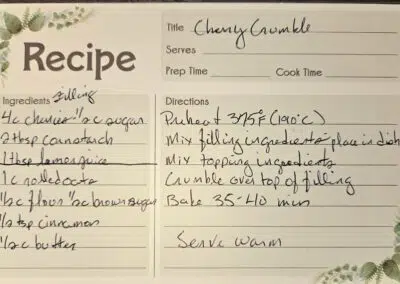 Recipe
Title Cherry Crumble
Serves
Prep Time Cook Time
Ingredients filling
4c cherries 1/2 c sugar
2 tbsp cornstarch
1 tbsp lemon juice
1c rolled oats
1/2 c flour 1/2 c brown sugar
1/2 tsp cinnamon
1/2 c butter
Directions
Preheat 375°F (190°C)
Mix filling ingredients place in dish
Mix topping ingredients
Crumble over top of filling
Bake 35-40 min
Serve warm